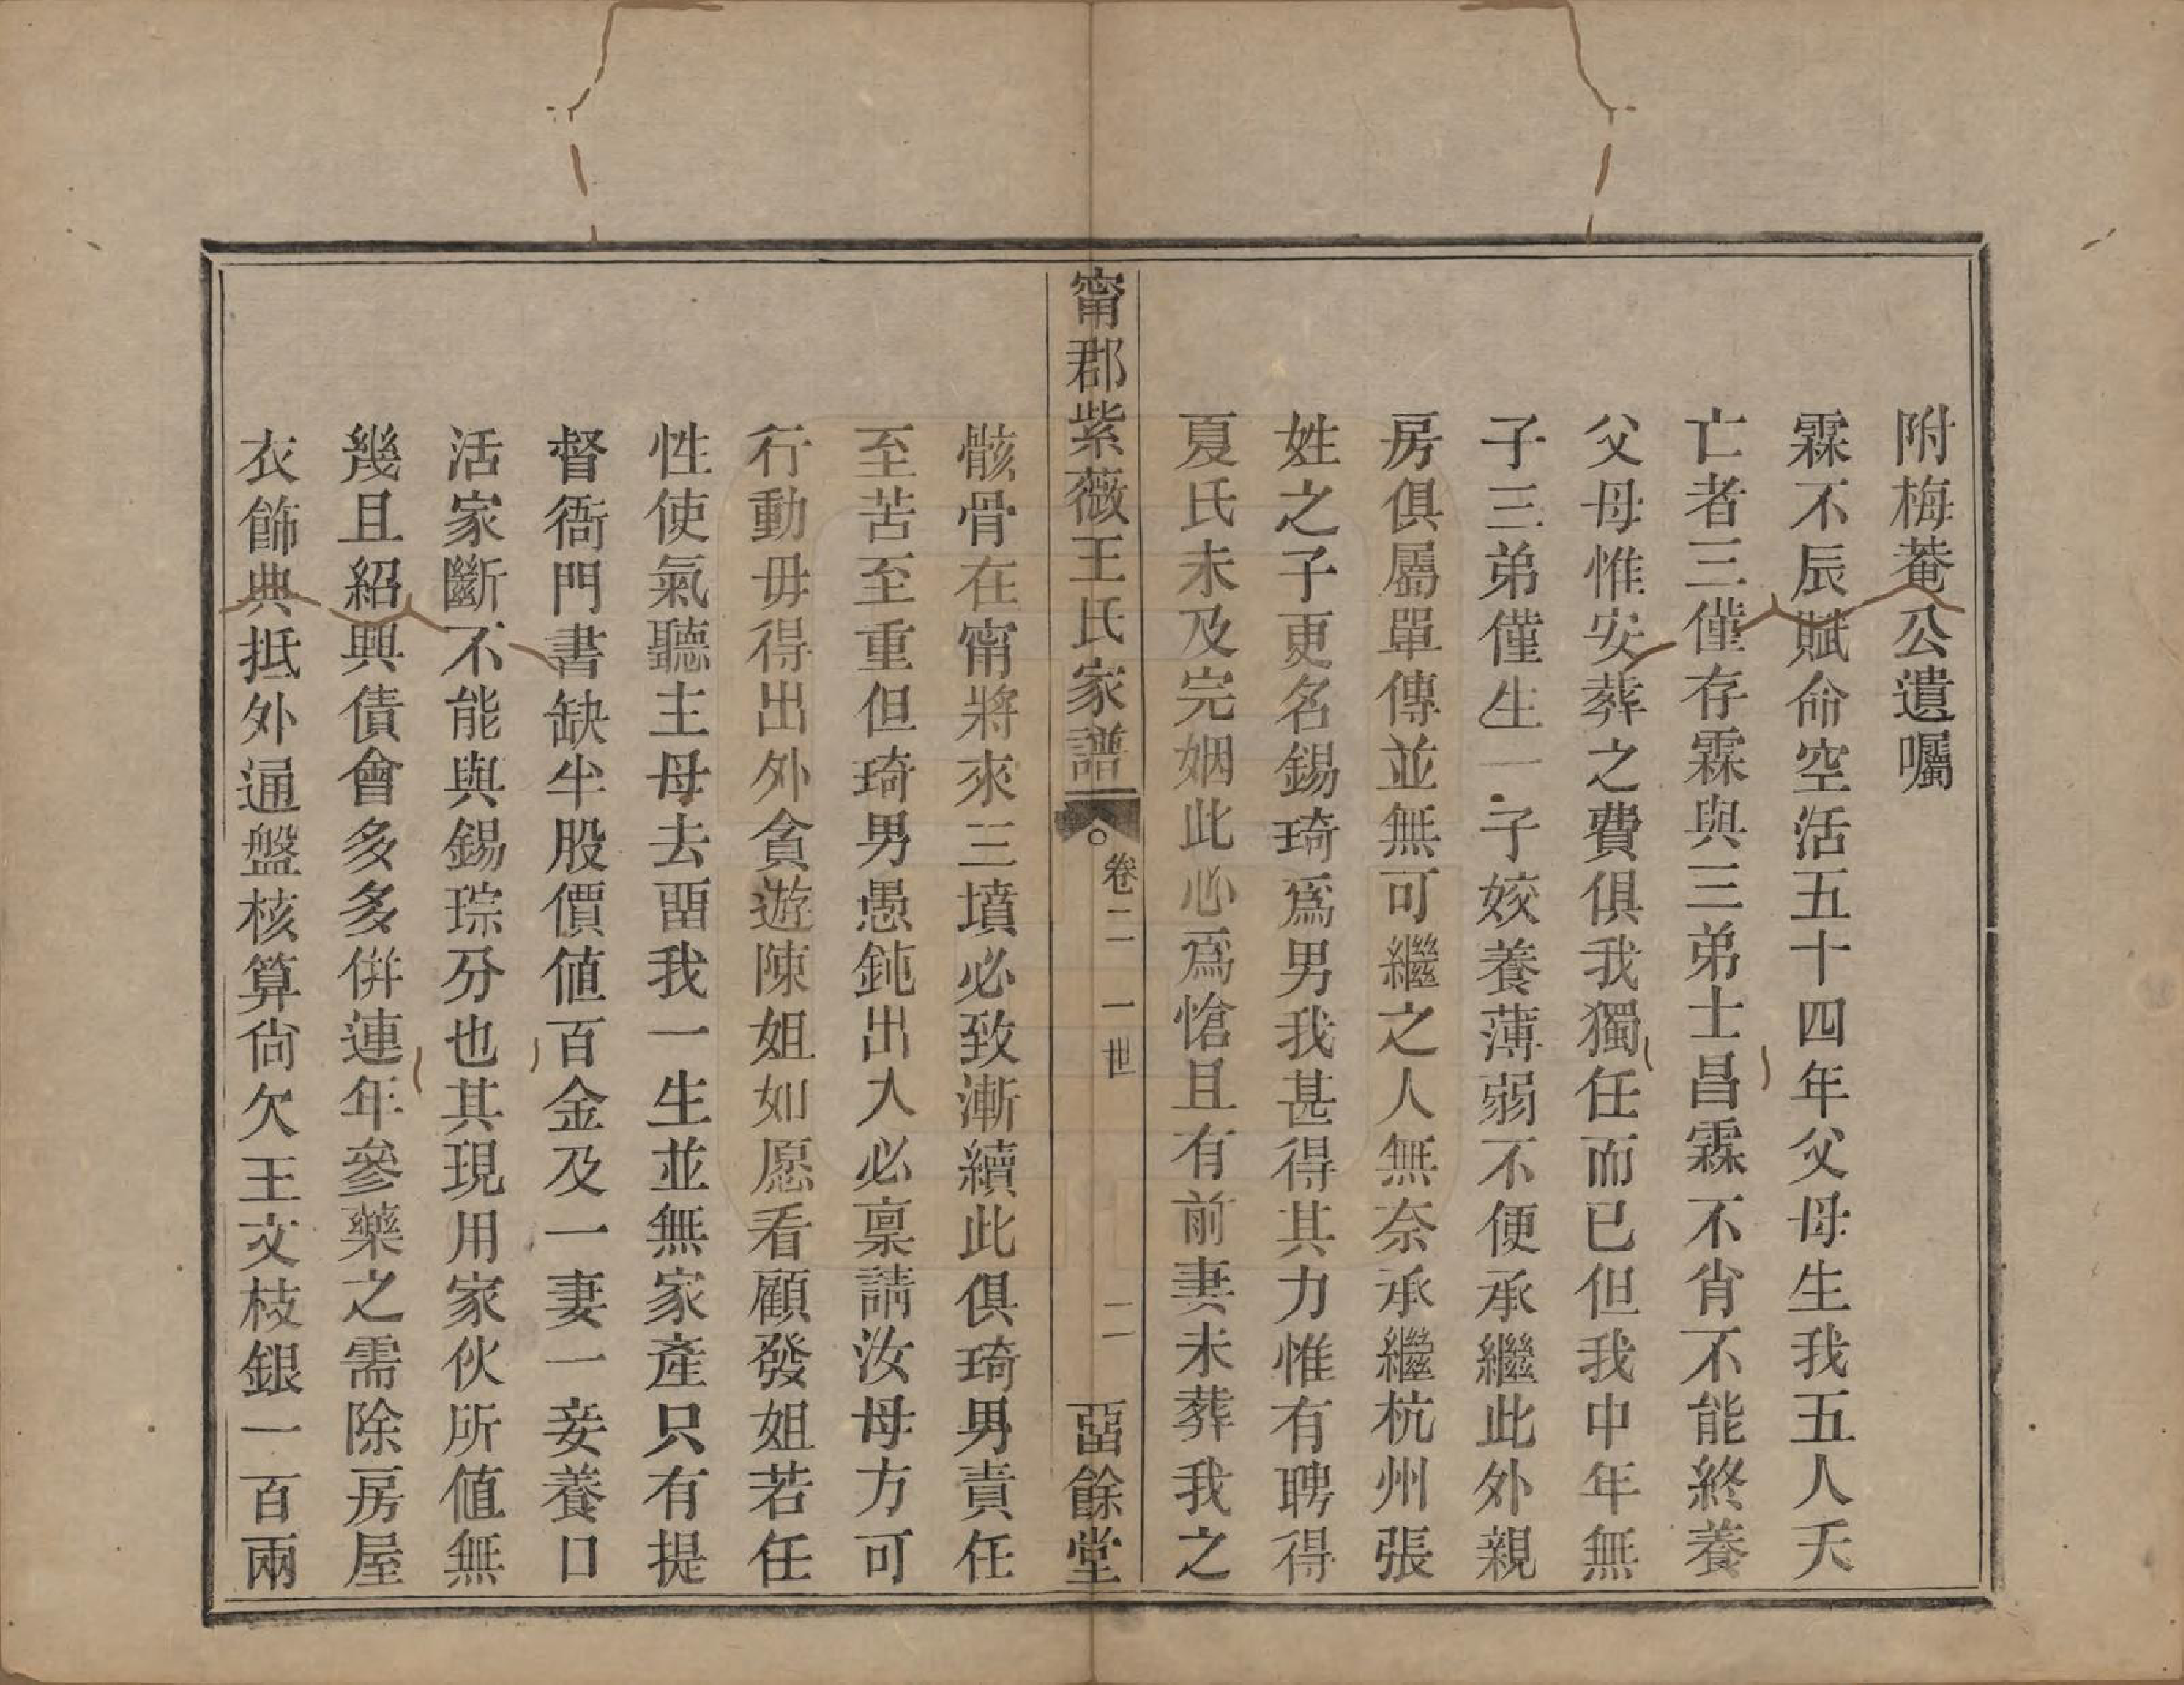 附梅菴公遺囑
霖不辰賦命空活五十四年父母生我五人夭
亡者三僅存霖與三弟士昌霖不肖不能終養
父母惟安葬之費俱我獨任而已但我中年無
子三弟僅生一子姣養薄弱不便承繼此外親
房俱屬單傳並無可繼之人無奈承繼杭州張
姓之子更名錫琦爲男我甚得其力惟有聘得
夏氏未及完姻此必爲愴且有前妻未葬我之
甯郡紫薇王氏家譜 卷二 一世 二 畱餘堂
骸骨在甯將來三墳必致漸續此俱琦男責任
至苦至重但琦男愚鈍出入必稟請汝母方可
行動毋得出外貪遊陳姐如愿看顧發姐若任
性使氣聽主母去畱我一生並無家產只有提
督衙門書缺半股價値百金及一妻一妾養口
活家斷不能與錫琮分也其現用家伙所値無
幾且紹興債會多多併連年參藥之需除房屋
衣飾典抵外通盤核算尙欠王文枝銀一百兩